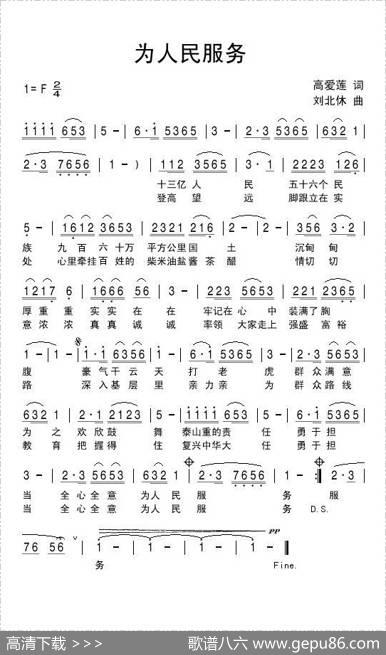 为人民服务
1=F 2/4
高爱莲 词
刘北休 曲
i i i i 6 5 3 | 5 - | 6 · i 5 3 6 5 | 3 - | 2 · 3 5 3 6 5 | 6 3 2 1 |
2 · 3 7 6 5 6 | 1 - ) | 1 1 2 3 5 6 5 | 3 · i | 2 2 2 3 1 2 6 |
十三亿 人 民 五十六个 民
登高 望 远 脚跟立在 实
5 - | 1 6 1 2 3 6 5 3 | 2 3 2 1 2 1 6 | 2 - | 2 - | 3 5 6 3 2 |
族 九 百 六 十万 平方公里 国 土 沉甸 甸
处 心里牵挂 百 姓的 柴米油盐 酱 茶 醋 情切 切
1 2 1 7 6 | 1 6 6 6 5 6 | 2 2 3 5 6 5 3 | 2 2 1 5 6 5
厚 重 重 实 实 在 在 牢记在 心 中 装满了 胸
意 浓 浓 真 真 诚 诚 率领 大家走上 强盛 富 裕
1 - | 1 - | i · i 6 3 5 6 | i · i 6 5 | 3 · 5 2 3 | 5 5 3 6 5 |
腹 豪 气干 云 天 打 老 虎 群 众 满 意
路 深 入基 层 里 亲 力 亲 为 群 众 路 线
6 3 2 1 | 2 · 1 2 1 2 3 | 5 - | i i i i 6 5 3 | 5 · 6 | 2 3 5 3 6 5 |
为 之 欢 欣 鼓 舞 泰山重的 责 任 勇于 担
教 育 把 握 得 住 复兴中华 大 任 勇于 担
3 - | 2 · 3 5 6 5 3 | 6 3 2 1 | 2 · 3 7 6 5 6 | 1 - :‖ 2 · 3
当 全 心 全 意 为 人 民 服 务 服
当 全 心 全 意 为 人 民 服 务 D.S.
7 6 5 6 | 1 - | 1 - | 1 - | 1 - ‖
pp
务 Fine.
高清下载 >>>
歌谱八六 www.gepu86.com